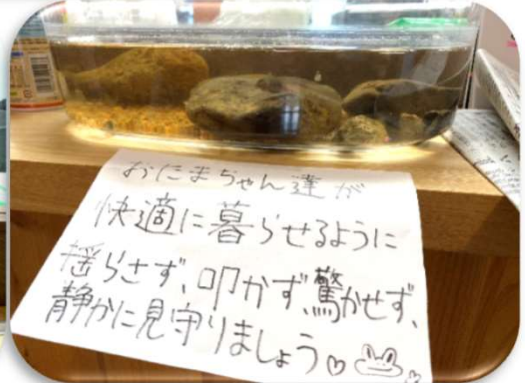 おたまちゃん達が
快適に暮らせるように
揺らさず、叩かず、驚かせず、
静かに見守りましょう♡